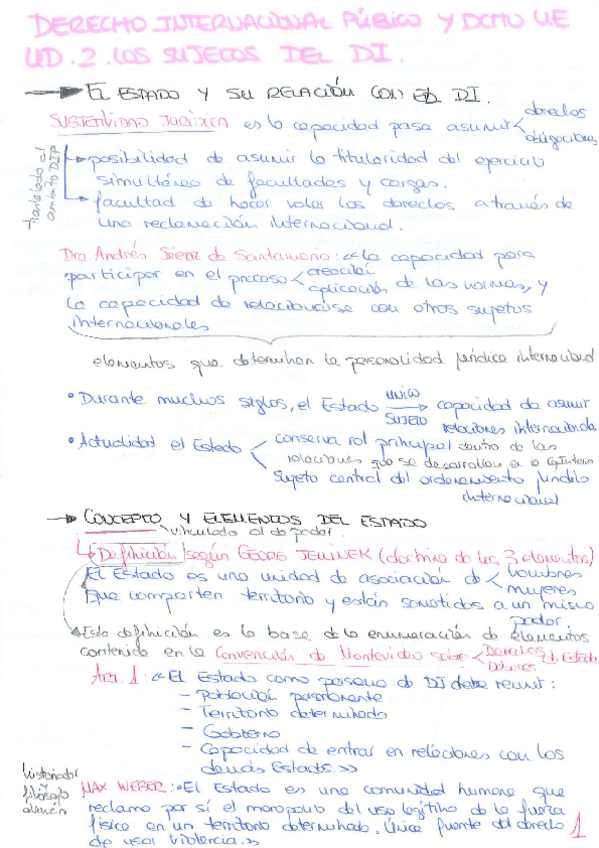 DERECHO INTERNACIONAL PÚBLICO Y DCHO UE
UD.2. LOS SUJETOS DEL DI.
→ EL ESTADO Y SU RELACIÓN CON EL DI.
SUBJETIVIDAD JURÍDICA es la capacidad para asumir < derechos
obligaciones
Trasladado al ámbito DIP
→ posibilidad de asumir la titularidad del ejercicio
simultáneo de facultades y cargas.
→ facultad de hacer valer los derechos a través de
una reclamación internacional.
Dra. Andrés Sáenz de Santamaría: «la capacidad para
participar en el proceso < creación
aplicación de las normas, y
la capacidad de relacionarse con otros sujetos
internacionales
elementos que determinan la personalidad jurídica internacional
• Durante muchos siglos, el Estado ÚNICO SUJETO → capacidad de asumir
relaciones internacionales
• Actualidad el Estado < conserva rol principal dentro de las
relaciones que se desarrollan
sujeto central del ordenamiento jurídico
internacional
→ CONCEPTO Y ELEMENTOS DEL ESTADO
vinculado al do poder.
↳ Definición según GEORG JELLINEK (doctrina de los 3 elementos)
El Estado es una unidad de asociación de < hombres
mujeres
que comparten territorio y están sometidos a un mismo
poder.
Esta definición es la base de la enumeración de elementos
contenido en la Convención de Montevideo sobre < Derechos
Deberes de Estado
Art. 1: «El Estado como persona de DI debe reunir:
– Población permanente
– Territorio determinado
– Gobierno
– Capacidad de entrar en relaciones con los
demás Estados.»
historiador
y filósofo
alemán
MAX WEBER: «El Estado es una comunidad humana que
reclama por sí el monopolio del uso legítimo de la fuerza
física en un territorio determinado. Única fuente del derecho
de usar violencia.»
1